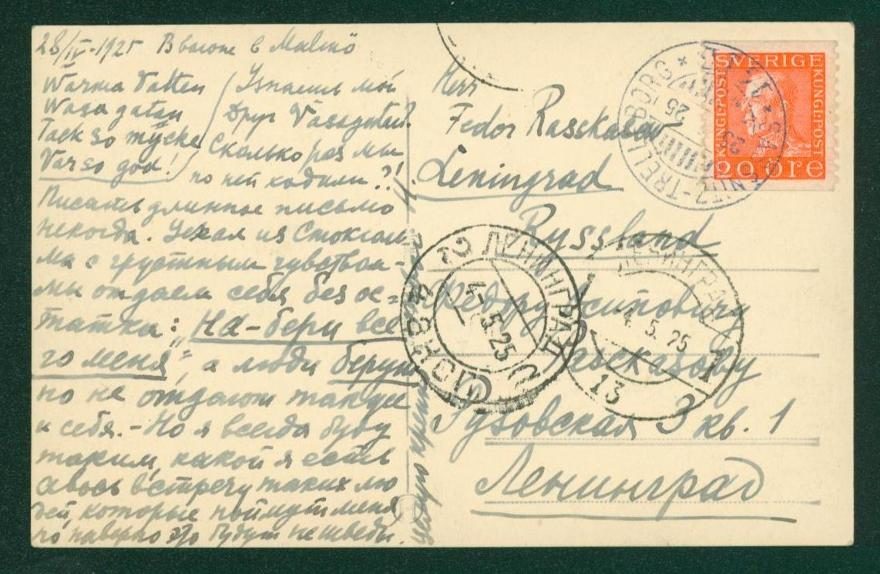 28/IV-1925 В вагоне в Malmö
Warma Vatten
Wasagatan
Tack so mycke
Var so god!
Узнаешь мой
Друг Vasagatan?
Сколько раз мы
по ней ходили?!
Писать длинное письмо
некогда. Уехал из Стокголь-
ма с грустным чувством-
мы отдаем себя без ос-
татка: „На-бери все-
го меня", а люди берут
но не отдают также
и себя.-Но я всегда буду
таким, какой я есть
авось встречу таких лю-
дей, которые поймут меня
но, наверно это будут не шведы.
Целую крепко
Herr
Fedor Rasskasow
Leningrad
Ryssland
Федру Осиповичу
Рассказову
Рузовская 3 кв. 1
Ленинград
SVERIGE
KUNGL-POST
KUNGL-POST
20 ÖRE
SASSNITZ-TRELLEBORG
ЛЕНИНГРАД
4-5.25
ЛЕНИНГРАД
4.5.25
13
1